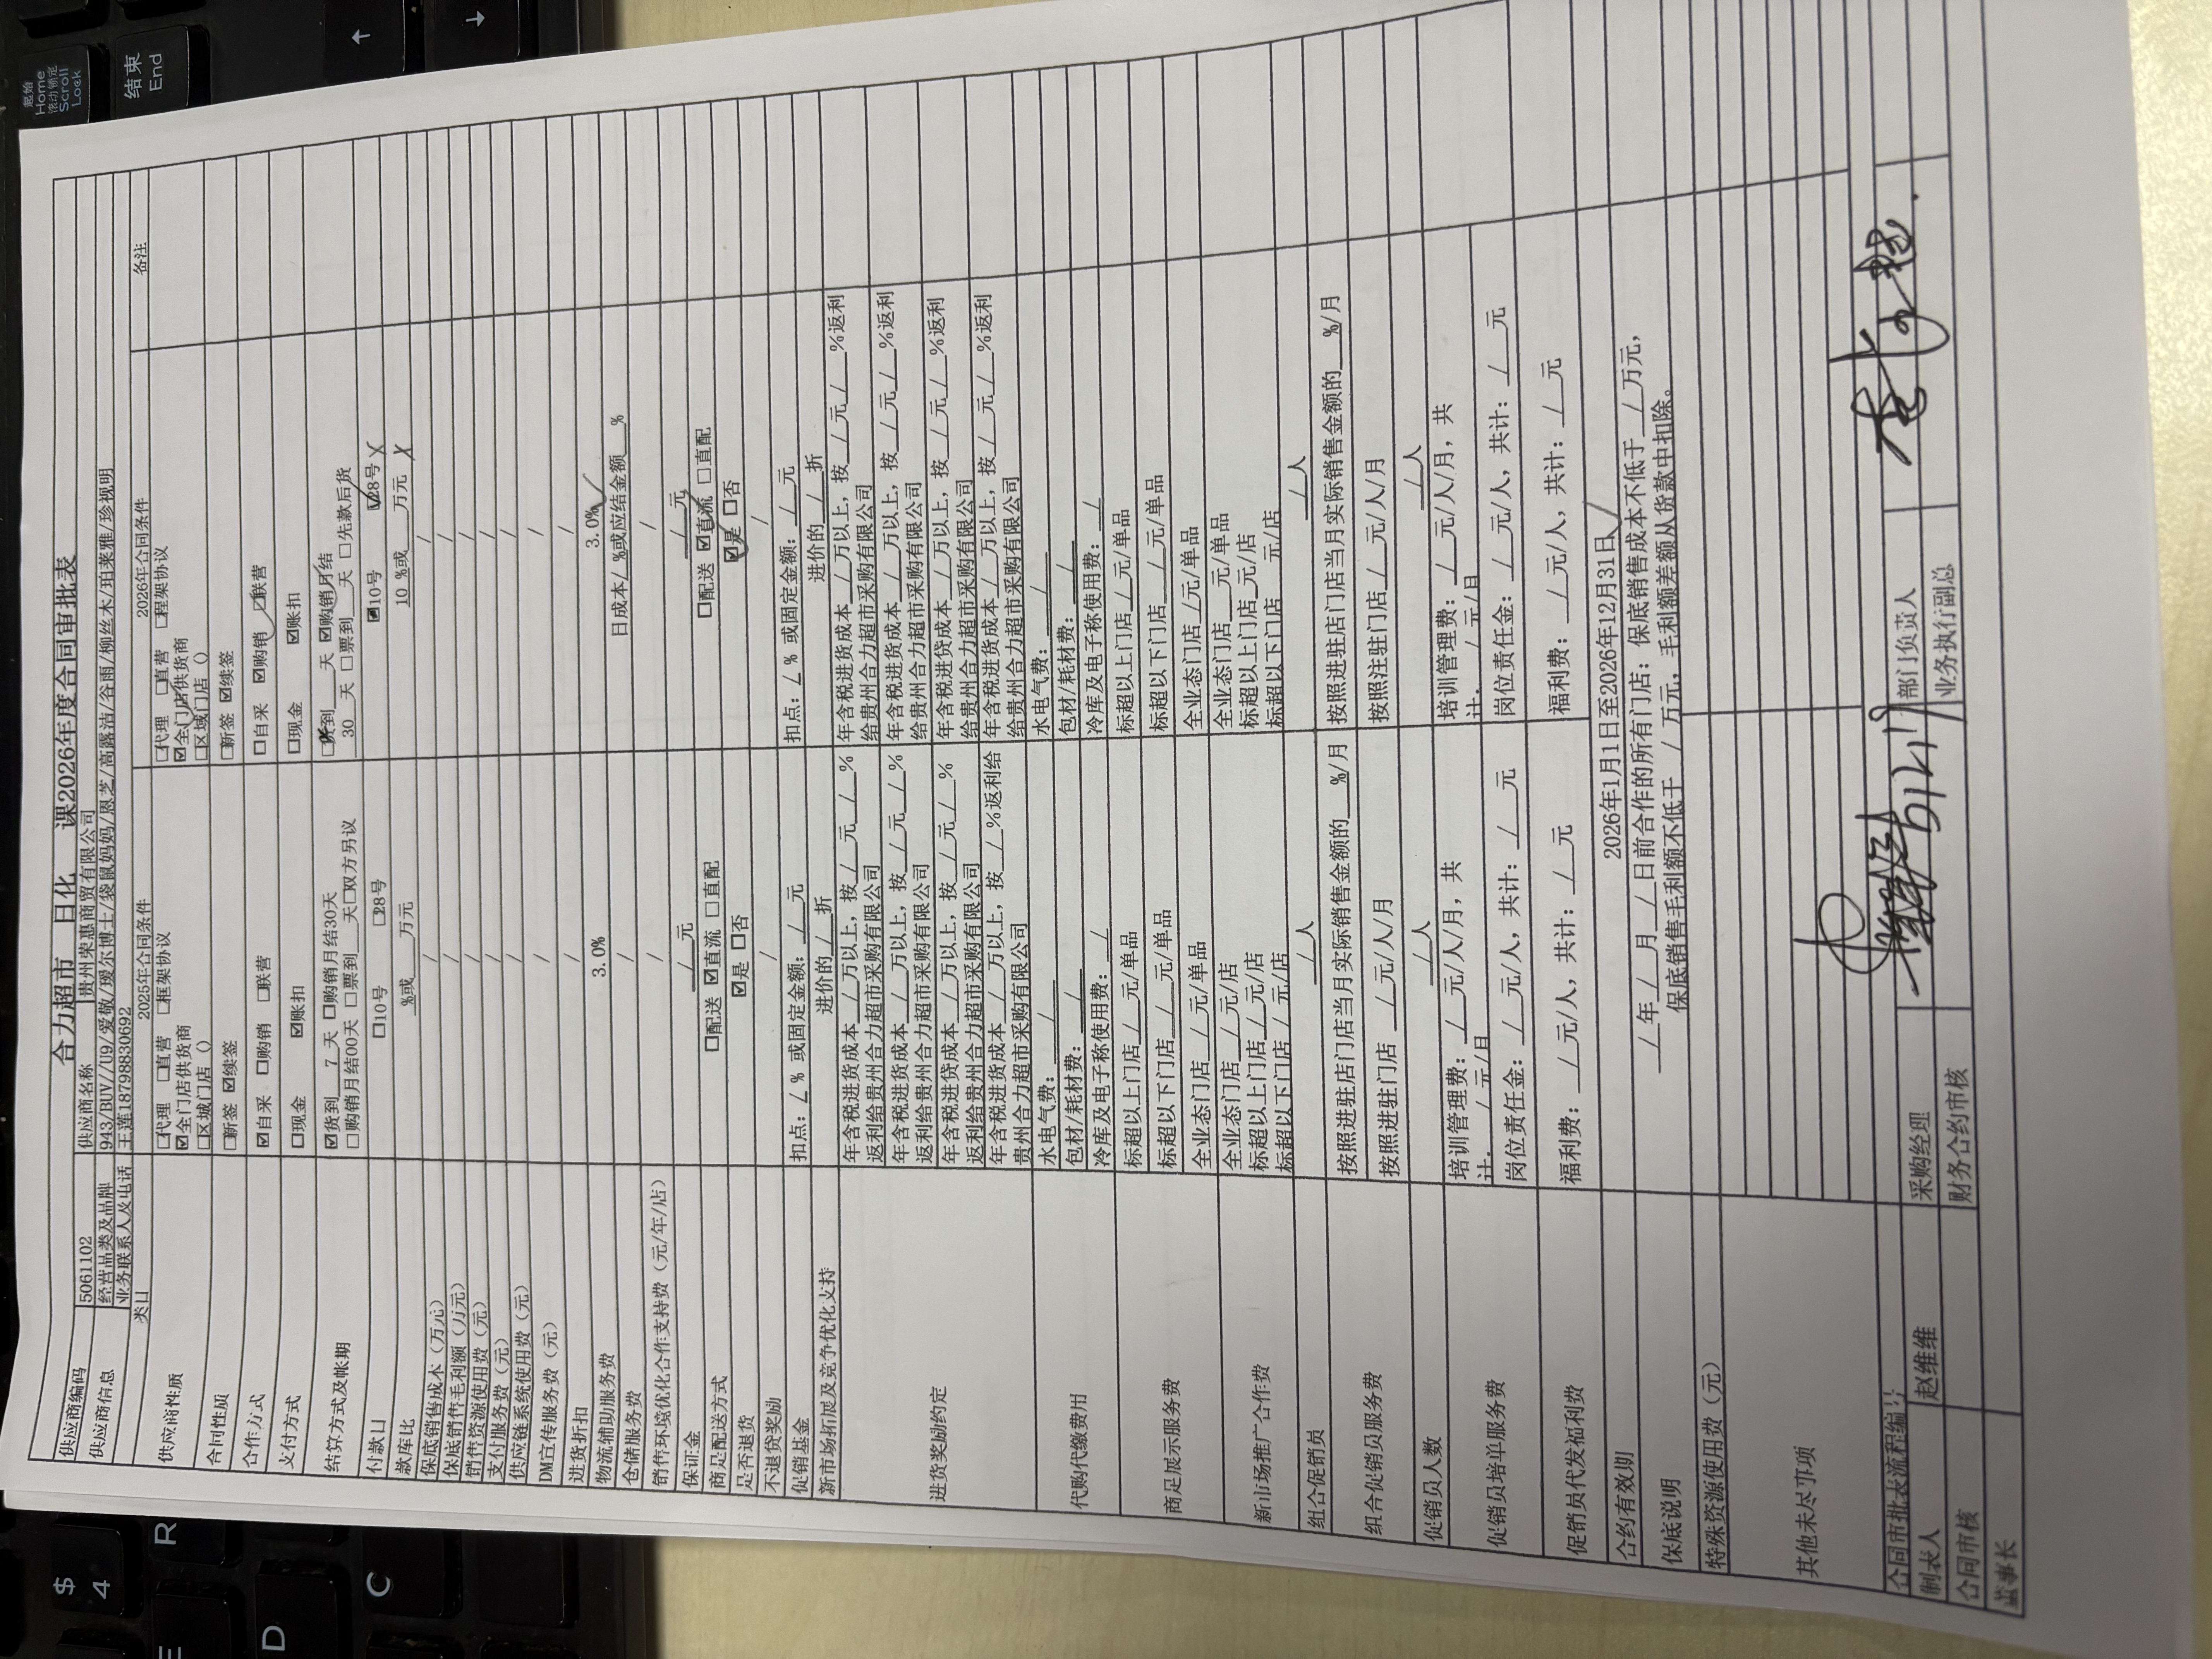 合力超市 日化 课2026年度合同审批表
供应商编码 5061102 供应商名称 贵州荣惠商贸有限公司
供应商信息 经营品类及品牌 943/BUV//U9/爱敬/瑷尔博士/袋鼠妈妈/恩芝/高露洁/谷雨/柳丝木/珀莱雅/珍视明
业务联系人及电话 王莲18798830692
类目 2025年合同条件 2026年合同条件 备注
供应商性质 □代理 □直营 □框架协议 □代理 □直营 □程架协议
☑全门店供货商 ☑全门店供货商
□区域门店() □区域门店()
合同性质 □新签 ☑续签 □新签 ☑续签
合作方式 ☑自采 □购销 □联营 □自采 ☑购销 □联营
支付方式 □现金 ☑账扣 □现金 ☑账扣
结算方式及帐期 ☑货到 7 天 □购销月结30天 □货到 天 ☑购销月结
□购销月结00天 □票到 天□双方另议 30 天 □票到 天 □先款后货
付款日 □10号 □28号 ☑10号 ☑28号 X
款库比 %或 万元 10 %或 万元 X
保底销售成本(万元) / /
保底销售毛利额(万元) / /
销售资源使用费(元) / /
支付服务费(元) / /
供应链系统使用费(元) / /
DM宣传服务费(元) / /
进货折扣 / /
物流辅助服务费 3.0% 3.0%
仓储服务费 / 日成本/ %或应结金额 %
销售环境优化合作支持费(元/年/店) / /
保证金 / 元 / 元
商品配送方式 □配送 ☑直流 □直配 □配送 ☑直流 □直配
是否退货 ☑是 □否 ☑是 □否
不退货奖励 / /
促销基金 扣点: / % 或固定金额: / 元 扣点: / % 或固定金额: / 元
新市场拓展及竞争优化支持 进价的 / 折 进价的 / 折
进货奖励约定
年含税进货成本 / 万以上,按 / 元 / % 年含税进货成本 / 万以上,按 / 元 / %返利
返利给贵州合力超市采购有限公司 给贵州合力超市采购有限公司
年含税进货成本 / 万以上,按 / 元 / % 年含税进货成本 / 万以上,按 / 元 / %返利
返利给贵州合力超市采购有限公司 给贵州合力超市采购有限公司
年含税进贷成本 / 万以上,按 / 元 / % 年含税进贷成本 / 万以上,按 / 元 / %返利
返利给贵州合力超市采购有限公司 给贵州合力超市采购有限公司
年含税进货成本 / 万以上,按 / %返利给 年含税进货成本 / 万以上,按 / 元 / %返利
贵州合力超市采购有限公司 给贵州合力超市采购有限公司
代购代缴费用 水电气费: / 水电气费: /
包材/耗材费: / 包材/耗材费: /
冷库及电子称使用费: / 冷库及电子称使用费: /
商品展示服务费 标超以上门店 / 元/单品 标超以上门店 / 元/单品
标超以下门店 / 元/单品 标超以下门店 / 元/单品
全业态门店 / 元/单品 全业态门店 /元/单品
新市场推广合作费 全业态门店 / 元/店 全业态门店 元/单品
标超以上门店 / 元/店 标超以上门店 元/店
标超以下门店 / 元/店 标超以下门店 元/店
组合促销员 / 人 / 人
组合促销员服务费 按照进驻店门店当月实际销售金额的 %/月 按照进驻店门店当月实际销售金额的 %/月
按照进驻门店 / 元/人/月 按照注驻门店 / 元/人/月
促销员人数 / 人 / 人
促销员培单服务费 培训管理费: / 元/人/月,共 培训管理费: / 元/人/月,共
计: / 元/月 计: / 元/月
岗位责任金: / 元/人,共计: / 元 岗位责任金: / 元/人,共计: / 元
促销员代发福利费 福利费: / 元/人,共计: / 元 福利费: / 元/人,共计: / 元
合约有效期 2026年1月1日至2026年12月31日
保底说明 / 年 / 月 / 日前合作的所有门店:保底销售成本不低于 / 万元,
保底销售毛利额不低于 / 万元,毛利额差额从货款中扣除。
特殊资源使用费(元)
其他未尽事项
合同审批表流程编号
制表人 赵维维 采购经理 部门负责人
合同审核 财务合约审核 业务执行副总
董事长